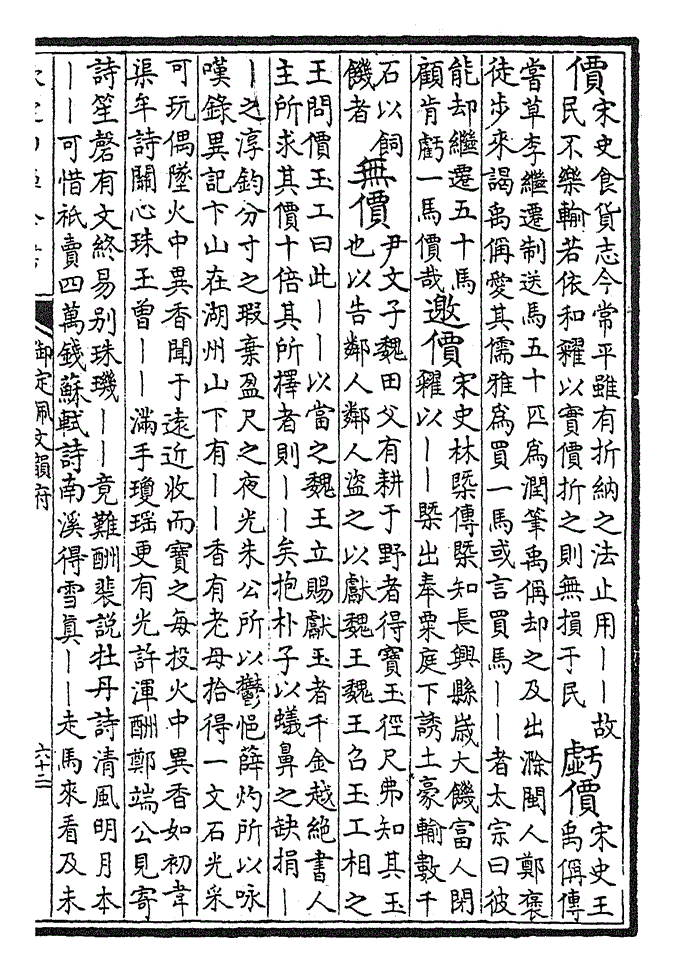 價 宋史食貨志今常平雖有折納之法止用——故
民不樂輸若依和糴以實價折之則無損于民
虧價 宋史王
禹偁傳
嘗草李繼遷制送馬五十匹為潤筆禹偁却之及出滁閩人鄭褒
徒步來謁禹偁愛其儒雅為買一馬或言買馬——者太宗曰彼
能却繼遷五十馬
顧肯虧一馬價哉
邀價 宋史林㮣傳㮣知長興縣歲大饑富人閉
糴以——㮣出奉粟庭下誘土豪輸數千
石以飼
饑者
無價 尹文子魏田父有耕于野者得寶玉徑尺弗知其玉
也以告鄰人鄰人盜之以獻魏王魏王召玉工相之
王問價玉工曰此——以當之魏王立賜獻玉者千金越絕書人
主所求其價十倍其所擇者則——矣抱朴子以蟻鼻之缺捐—
—之淳鈞分寸之瑕棄盈尺之夜光朱公所以鬱悒薛灼所以咏
嘆錄異記卞山在湖州山下有——香有老母拾得一文石光采
可玩偶墜火中異香聞于遠近收而寶之每投火中異香如初韋
渠年詩關心珠玉曾——滿手瓊瑶更有光許渾酬鄭端公見寄
詩笙磬有文終易别珠璣——竟難酬裴説牡丹詩清風明月本
——可惜祗賣四萬錢蘇軾詩南溪得雪真——走馬來看及未
御定佩文韻府
六十二